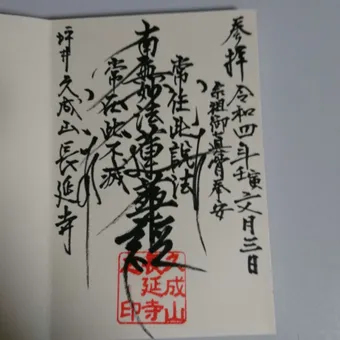 参拝 令和四年壬寅文月三日
宗祖御真骨奉安
常住此説法
南無妙法蓮華経
常在此不滅
坪井 久成山 長延寺
久成山
長延寺
之印